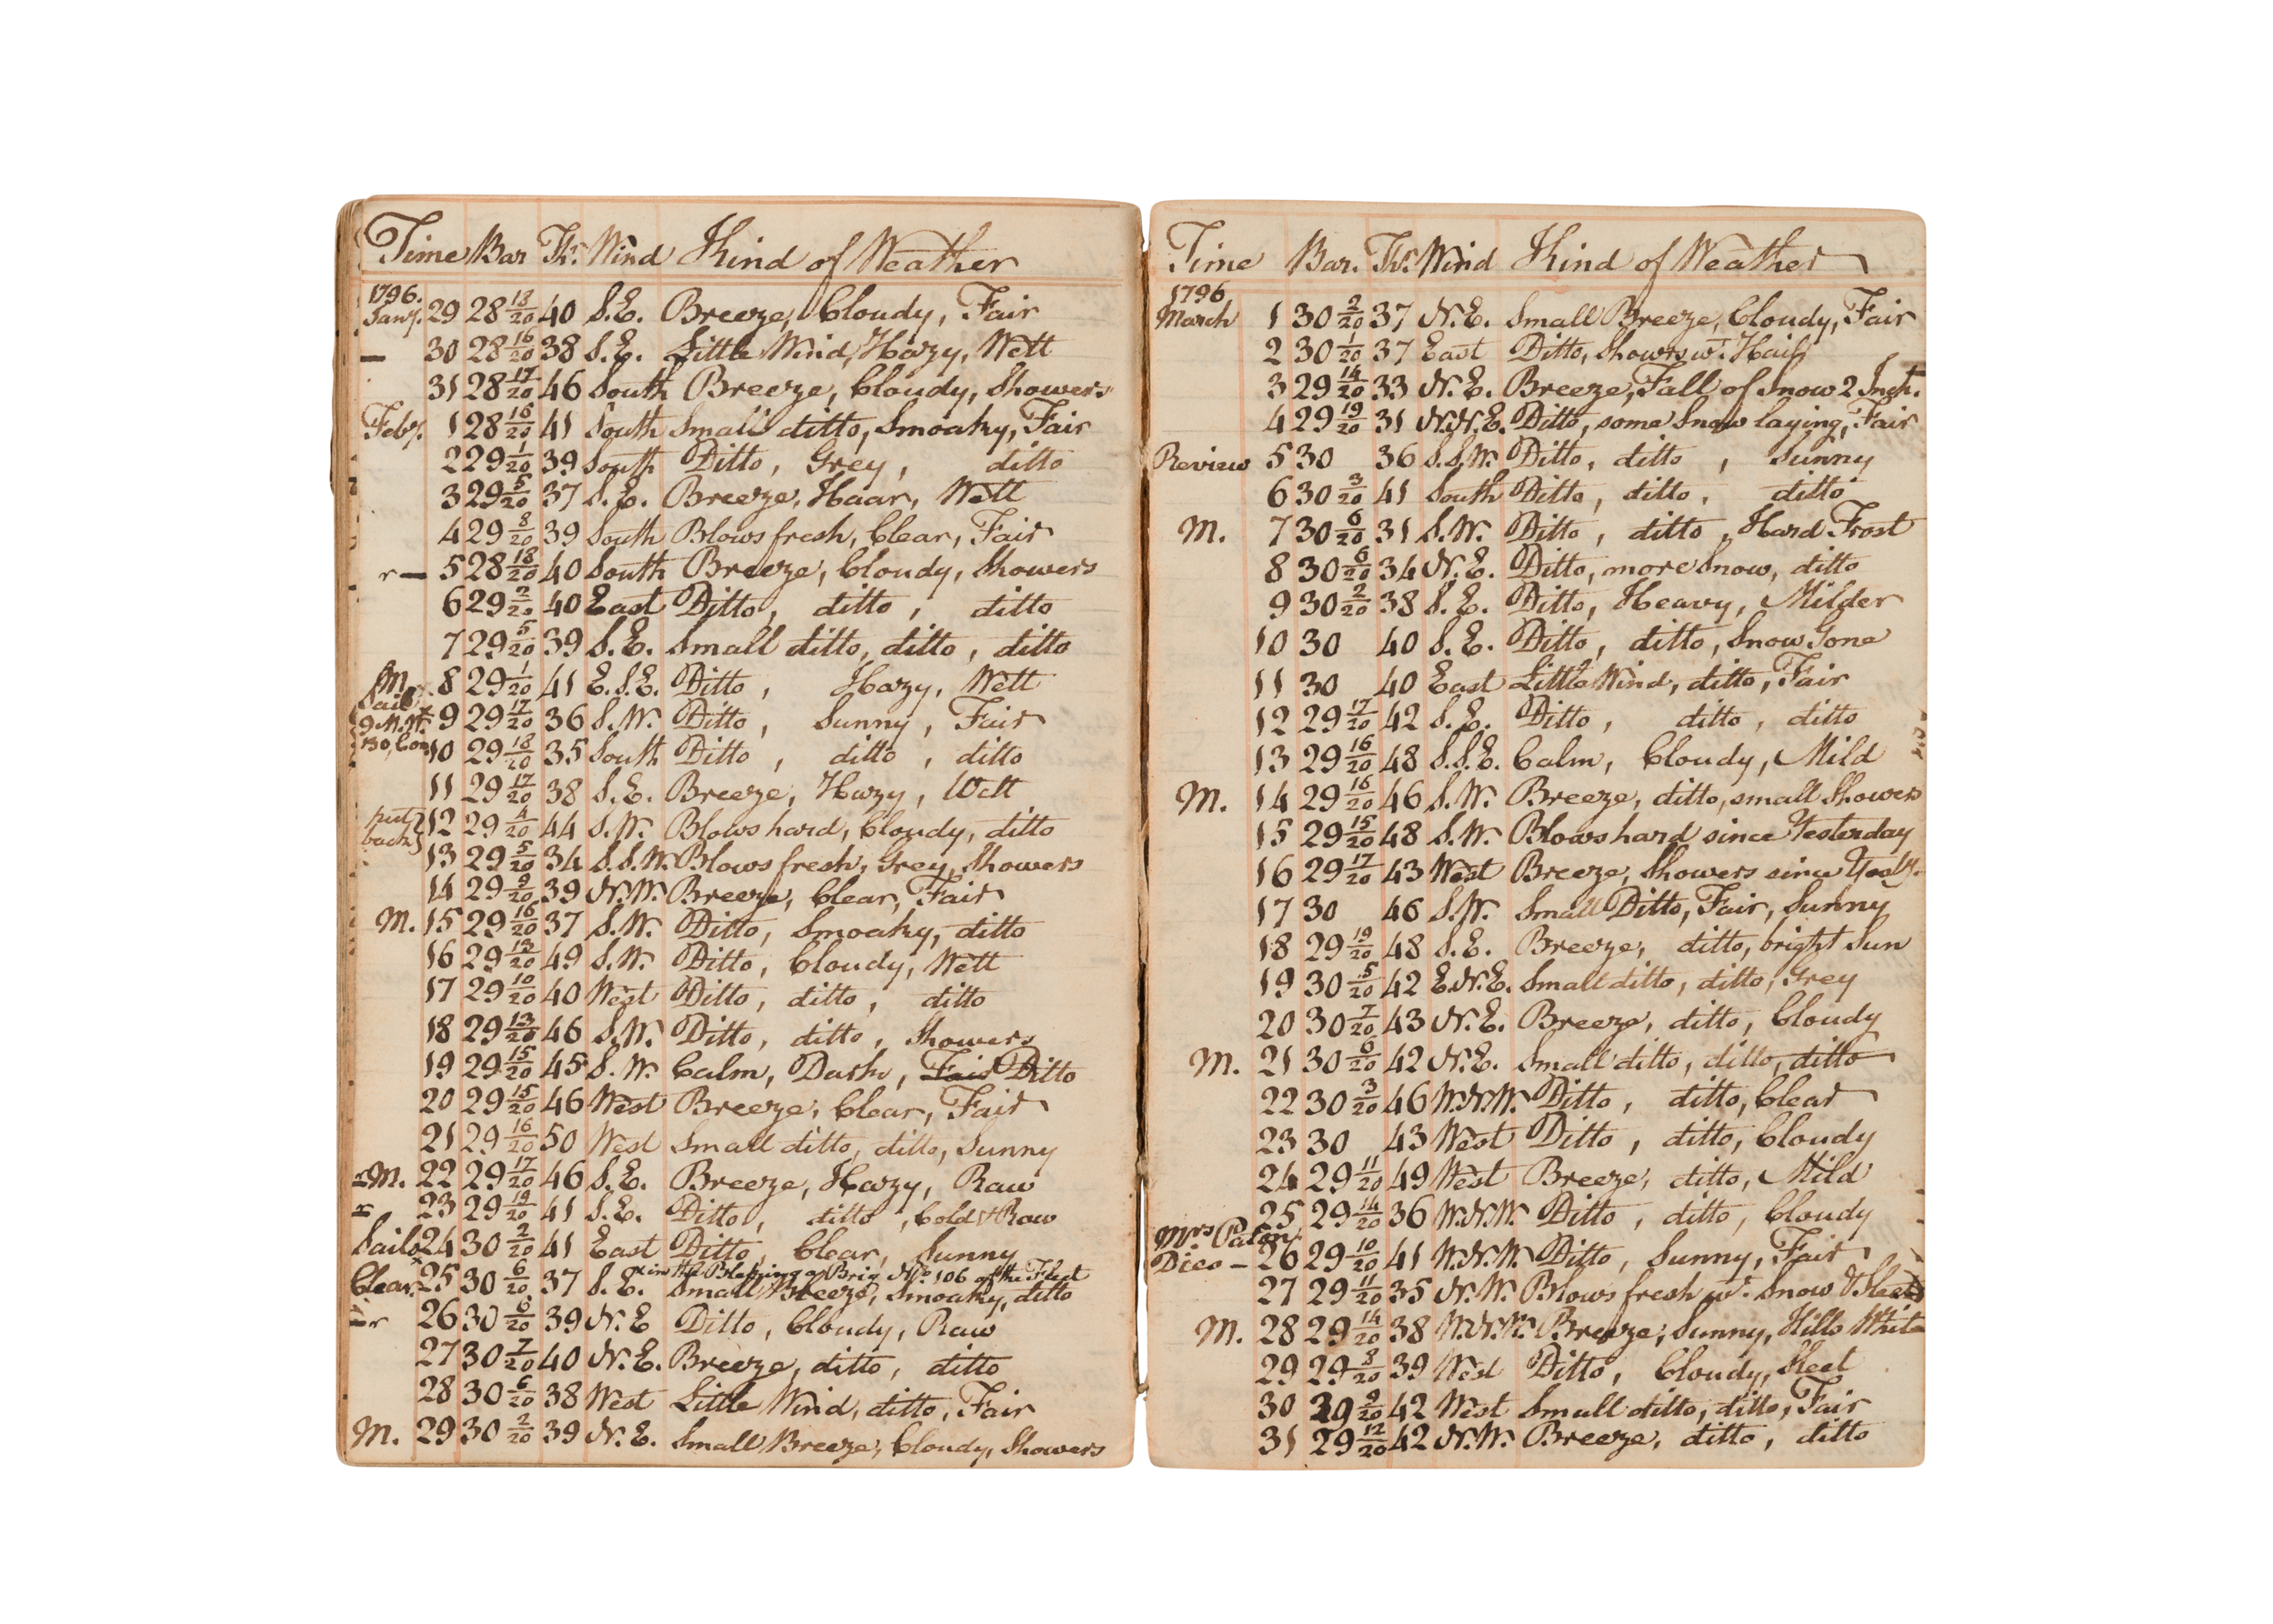 Time Bar Thr. Wind Kind of Weather
1796.
Jany. 29 28 18/20 40 S.E. Breeze, Cloudy, Fair
— 30 28 16/20 38 S.E. Little Wind, Hazy, Wett
31 28 17/20 46 South Breeze, Cloudy, Showers
Feby. 1 28 16/20 41 South Small ditto, Smoaky, Fair
2 29 1/20 39 South Ditto, Grey, ditto
3 29 5/20 37 S.E. Breeze, Haar, Wett
4 29 8/20 39 South Blows fresh, Clear, Fair
r — 5 28 18/20 40 South Breeze, Cloudy, Showers
6 29 2/20 40 East Ditto, ditto, ditto
7 29 5/20 39 S.E. Small ditto, ditto, ditto
M. 8 29 1/20 41 E.S.E. Ditto, Hazy, Wett
9 29 17/20 36 S.W. Ditto, Sunny, Fair
10 29 18/20 35 South Ditto, ditto, ditto
11 29 17/20 38 S.E. Breeze, Hazy, Wett
put back } 12 29 4/20 44 S.W. Blows hard, Cloudy, ditto
13 29 5/20 34 S.S.W. Blows fresh, Grey, Showers
14 29 9/20 39 N.W. Breeze, Clear, Fair
M. 15 29 16/20 37 S.W. Ditto, Smoaky, ditto
16 29 13/20 49 S.W. Ditto, Cloudy, Wett
17 29 10/20 40 West Ditto, ditto, ditto
18 29 13/20 46 S.W. Ditto, ditto, Showers
19 29 15/20 45 S.W. Calm, Dark, Fair Ditto
20 29 15/20 46 West Breeze, Clear, Fair
21 29 16/20 50 West Small ditto, ditto, Sunny
M. 22 29 17/20 46 S.E. Breeze, Hazy, Raw
r 23 29 19/20 41 S.E. Ditto, ditto, Cold & Raw
Sails x 24 30 2/20 41 East Ditto, Clear, Sunny
x in the Blessing a Brig No. 106 of the Fleet
Clear. 25 30 6/20 37 S.E. Small Breeze, Smoaky, ditto
— r 26 30 6/20 39 N.E Ditto, Cloudy, Raw
27 30 7/20 40 N.E. Breeze, ditto, ditto
28 30 6/20 38 West Little Wind, ditto, Fair
M. 29 30 2/20 39 N.E. Small Breeze, Cloudy, Showers
Time Bar. Thr. Wind Kind of Weather
1796
March 1 30 2/20 37 N.E. Small Breeze, Cloudy, Fair
2 30 1/20 37 East Ditto, Showrs wt. Hail
3 29 14/20 33 N.E. Breeze, Fall of Snow 2 Inch.
4 29 19/20 31 N.N.E. Ditto, some Snow laying, Fair
Review 5 30 36 S.S.W. Ditto, ditto, Sunny
6 30 3/20 41 South Ditto, ditto, ditto
M. 7 30 6/20 31 S.W. Ditto, ditto, Hard Frost
8 30 6/20 34 N.E. Ditto, more Snow, ditto
9 30 2/20 38 S.E. Ditto, Heavy, Milder
10 30 40 S.E. Ditto, ditto, Snow Gone
11 30 40 East Little Wind, ditto, Fair
12 29 17/20 42 S.E. Ditto, ditto, ditto
13 29 16/20 48 S.S.E. Calm, Cloudy, Mild
M. 14 29 16/20 46 S.W. Breeze, ditto, small Showers
15 29 15/20 48 S.W. Blows hard since Yesterday
16 29 17/20 43 West Breeze, Showers since Yesty.
17 30 46 S.W. Small Ditto, Fair, Sunny
18 29 19/20 48 S.E. Breeze, ditto, bright Sun
19 30 5/20 42 E.N.E. Small ditto, ditto, Grey
20 30 7/20 43 N.E. Breeze, ditto, Cloudy
M. 21 30 6/20 42 N.E. Small ditto, ditto, ditto
22 30 3/20 46 W.N.W. Ditto, ditto, Clear
23 30 43 West Ditto, ditto, Cloudy
24 29 11/20 49 West Breeze, ditto, Mild
25 29 14/20 36 W.N.W. Ditto, ditto, Cloudy
Mrs
Dies — 26 29 10/20 41 W.N.W. Ditto, Sunny, Fair
27 29 11/20 35 N.W. Blows fresh wt. Snow & Sleet
M. 28 29 14/20 38 W.N.W. Breeze, Sunny, Hills White
29 29 8/20 39 West Ditto, Cloudy, Sleet
30 29 9/20 42 West Small ditto, ditto, Fair
31 29 12/20 42 N.W. Breeze, ditto, ditto